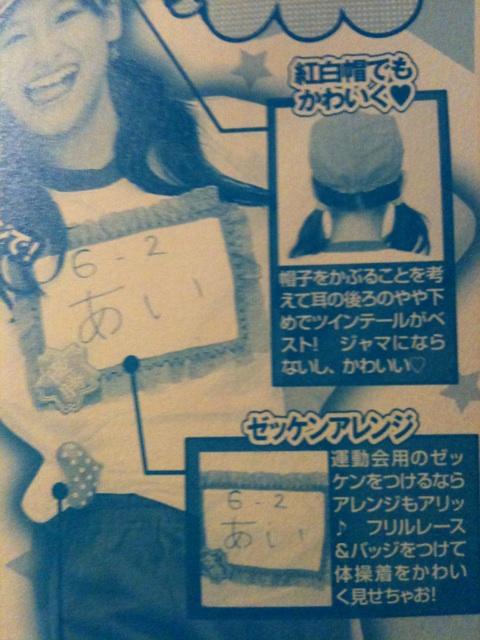 紅白帽でも
かわいく♥
帽子をかぶることを考
えて耳の後ろのやや下
めでツインテールがベ
スト! ジャマになら
ないし、かわいい♡
6-2
あい
ゼッケンアレンジ
6-2
あい
運動会用のゼッ
ケンをつけるなら
アレンジもアリッ
♪ フリルレース
&バッジをつけて
体操着をかわい
く見せちゃお!